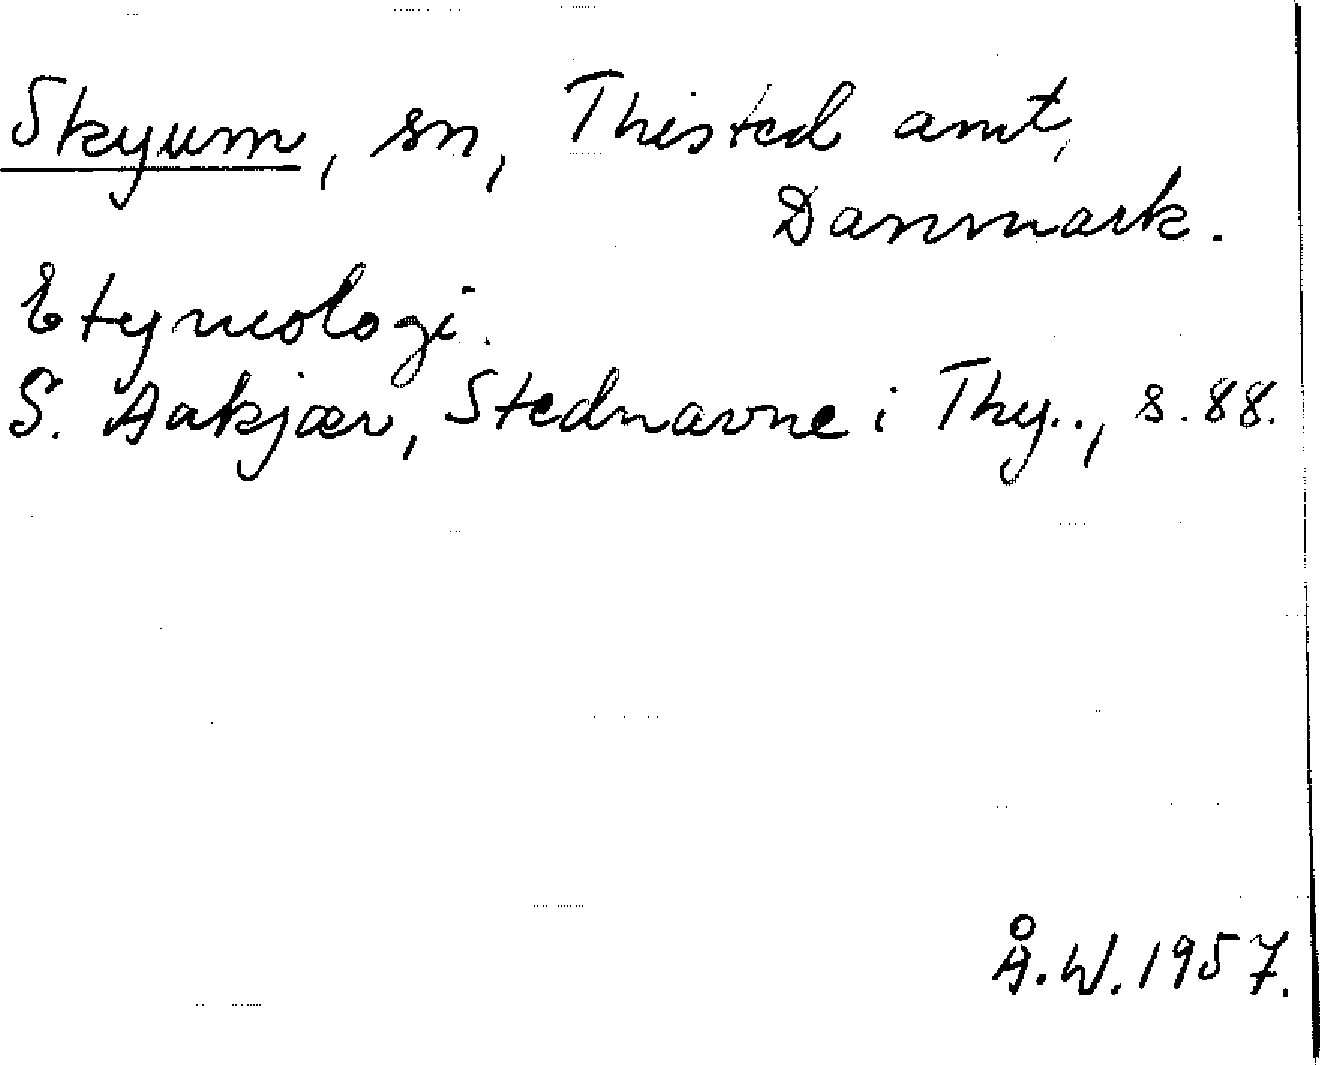 Skyum, sn, Thisted amt,
Danmark.
Etymologi.
S. Aakjær, Stednavne i Thy.., s. 88.
Å.W. 1957.